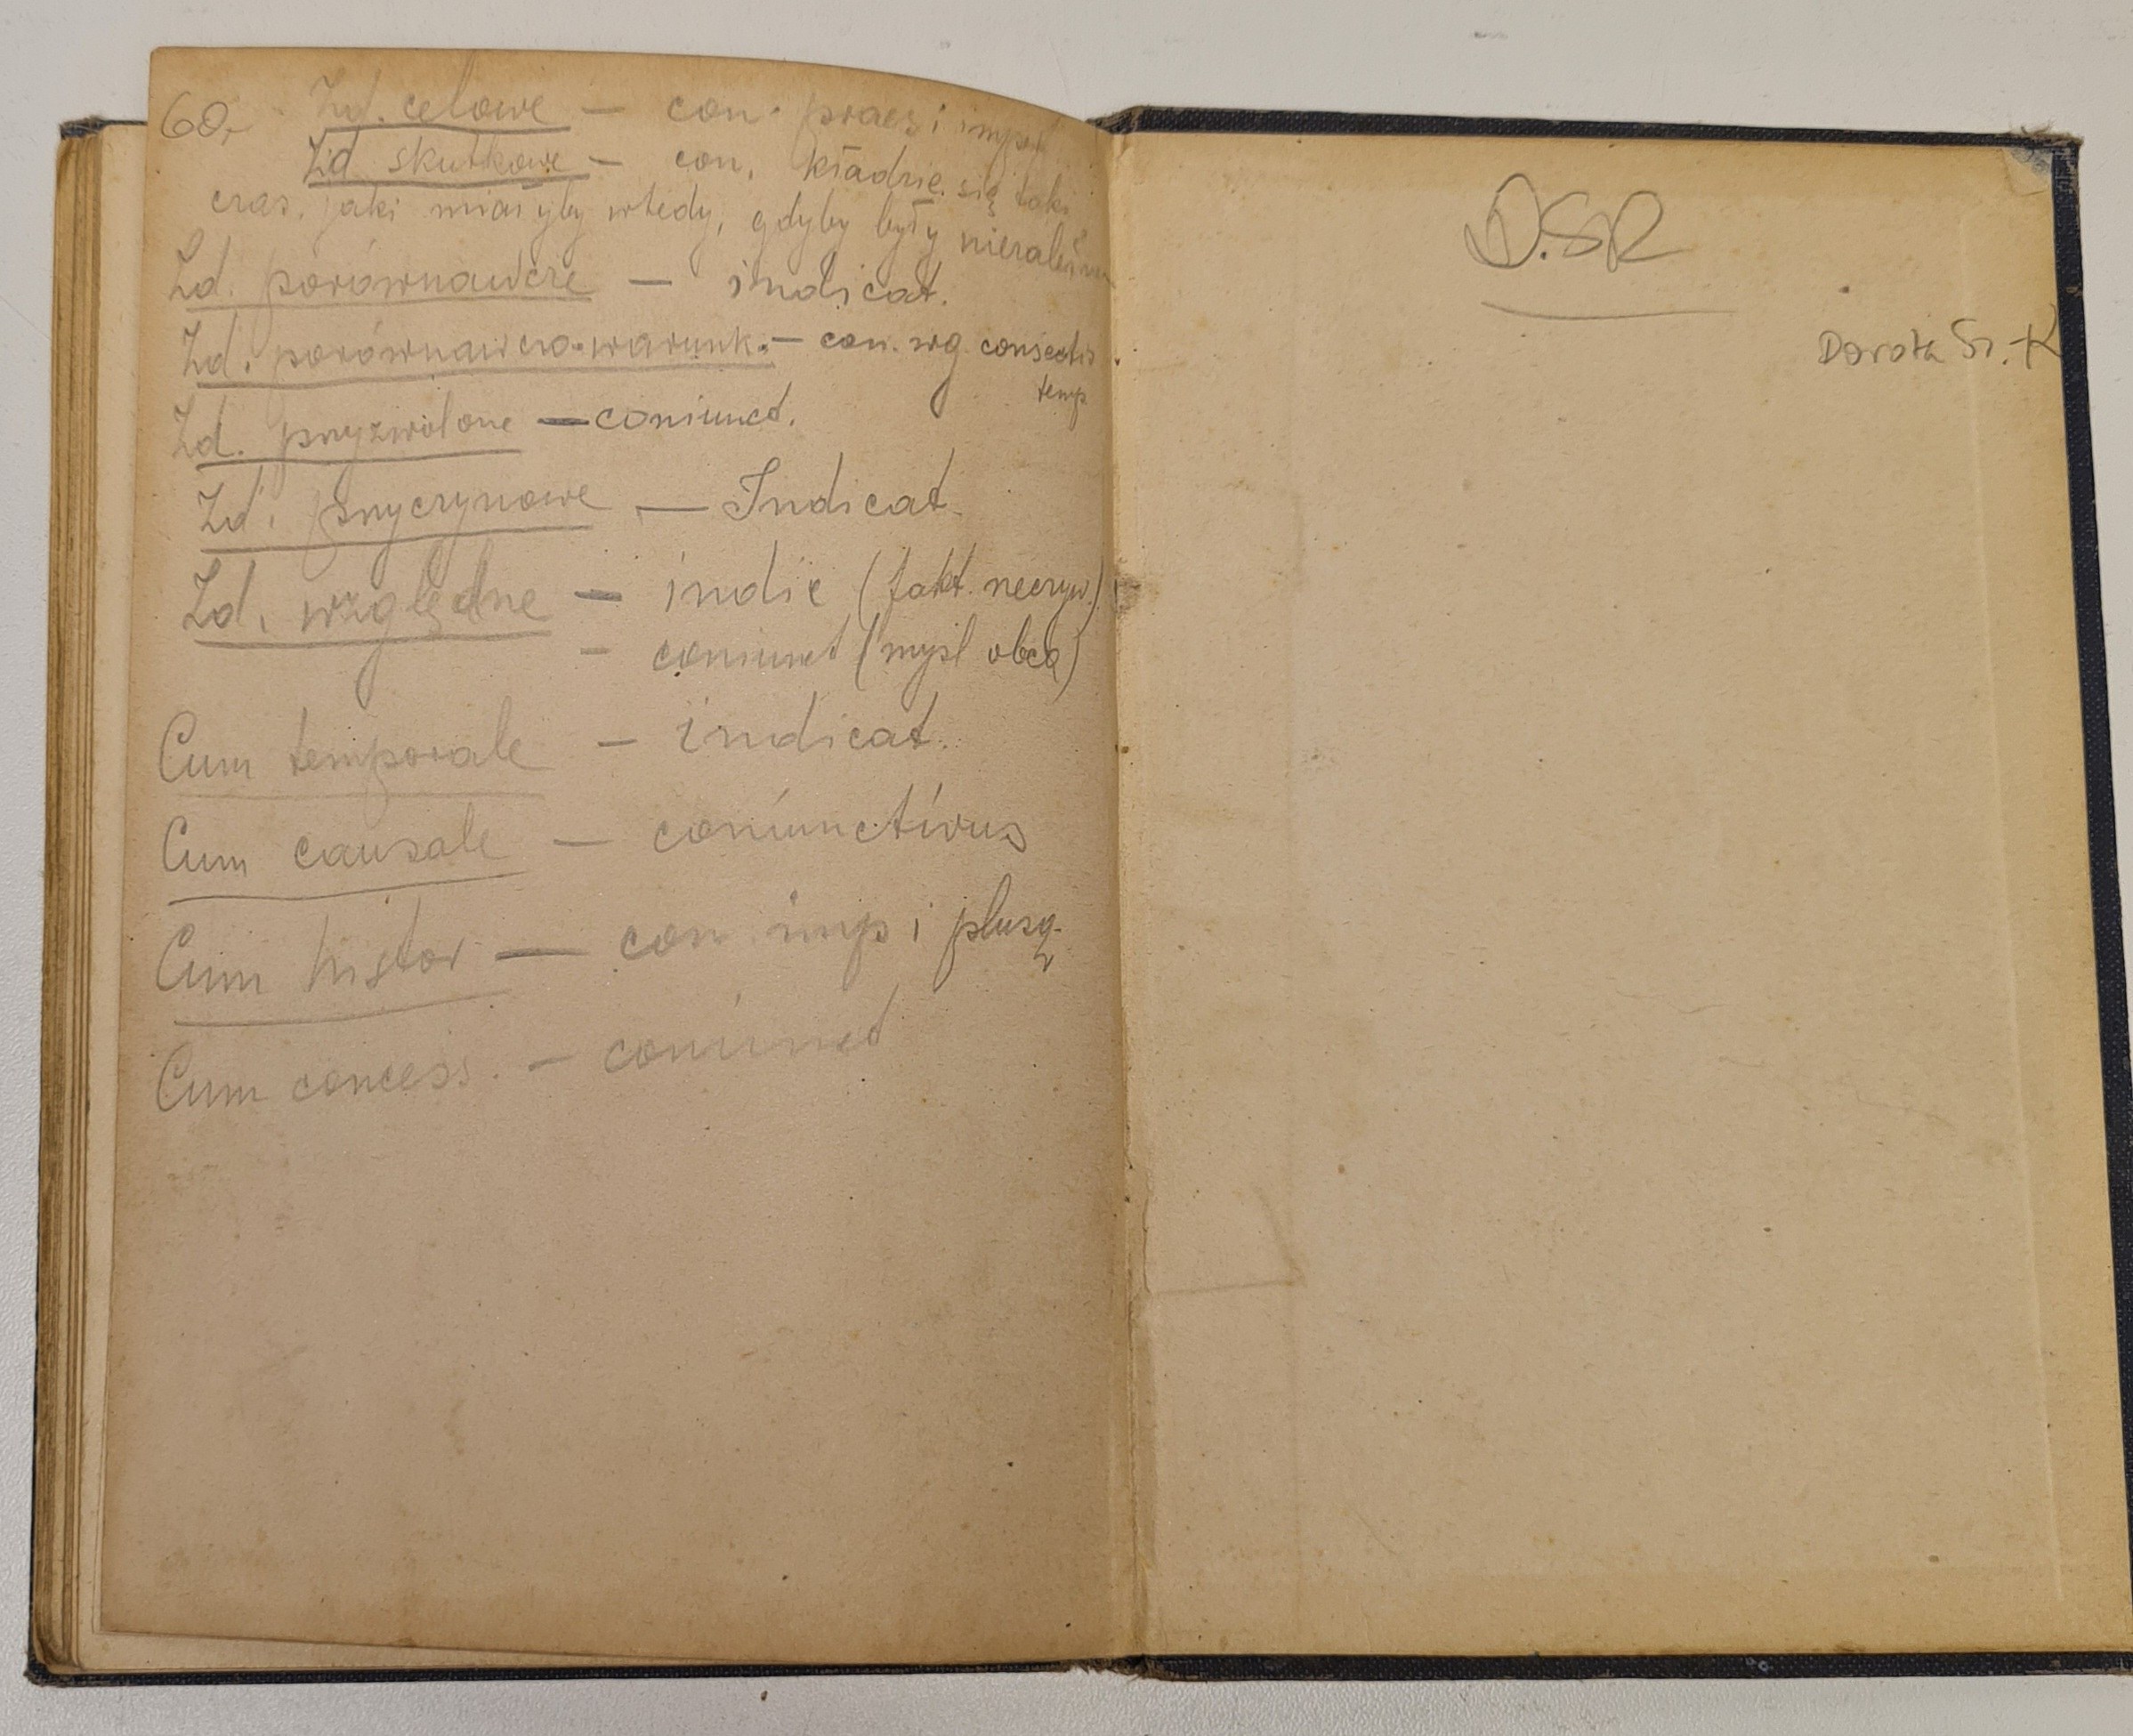 60,-
Zd. celowe — con. praes i impf
Zd. skutkowe — con. kładzie się taki
czas, jaki miałyby wtedy, gdyby były niezależne
Zd. porównawcze — indicat.
Zd. porównawczo-warunk. — con. wg. consecutio
temp.
Zd. przyzwolone — coniunct.
Zd. przyczynowe — Indicat.
Zd. względne — indic (fakt. rzeczyw.)
— coniunct (myśl obca)
Cum temporale — indicat.
Cum causale — coniunctivus
Cum histor — con. imp i plusq.
Cum concess. — coniunct
D.SR
Dorota